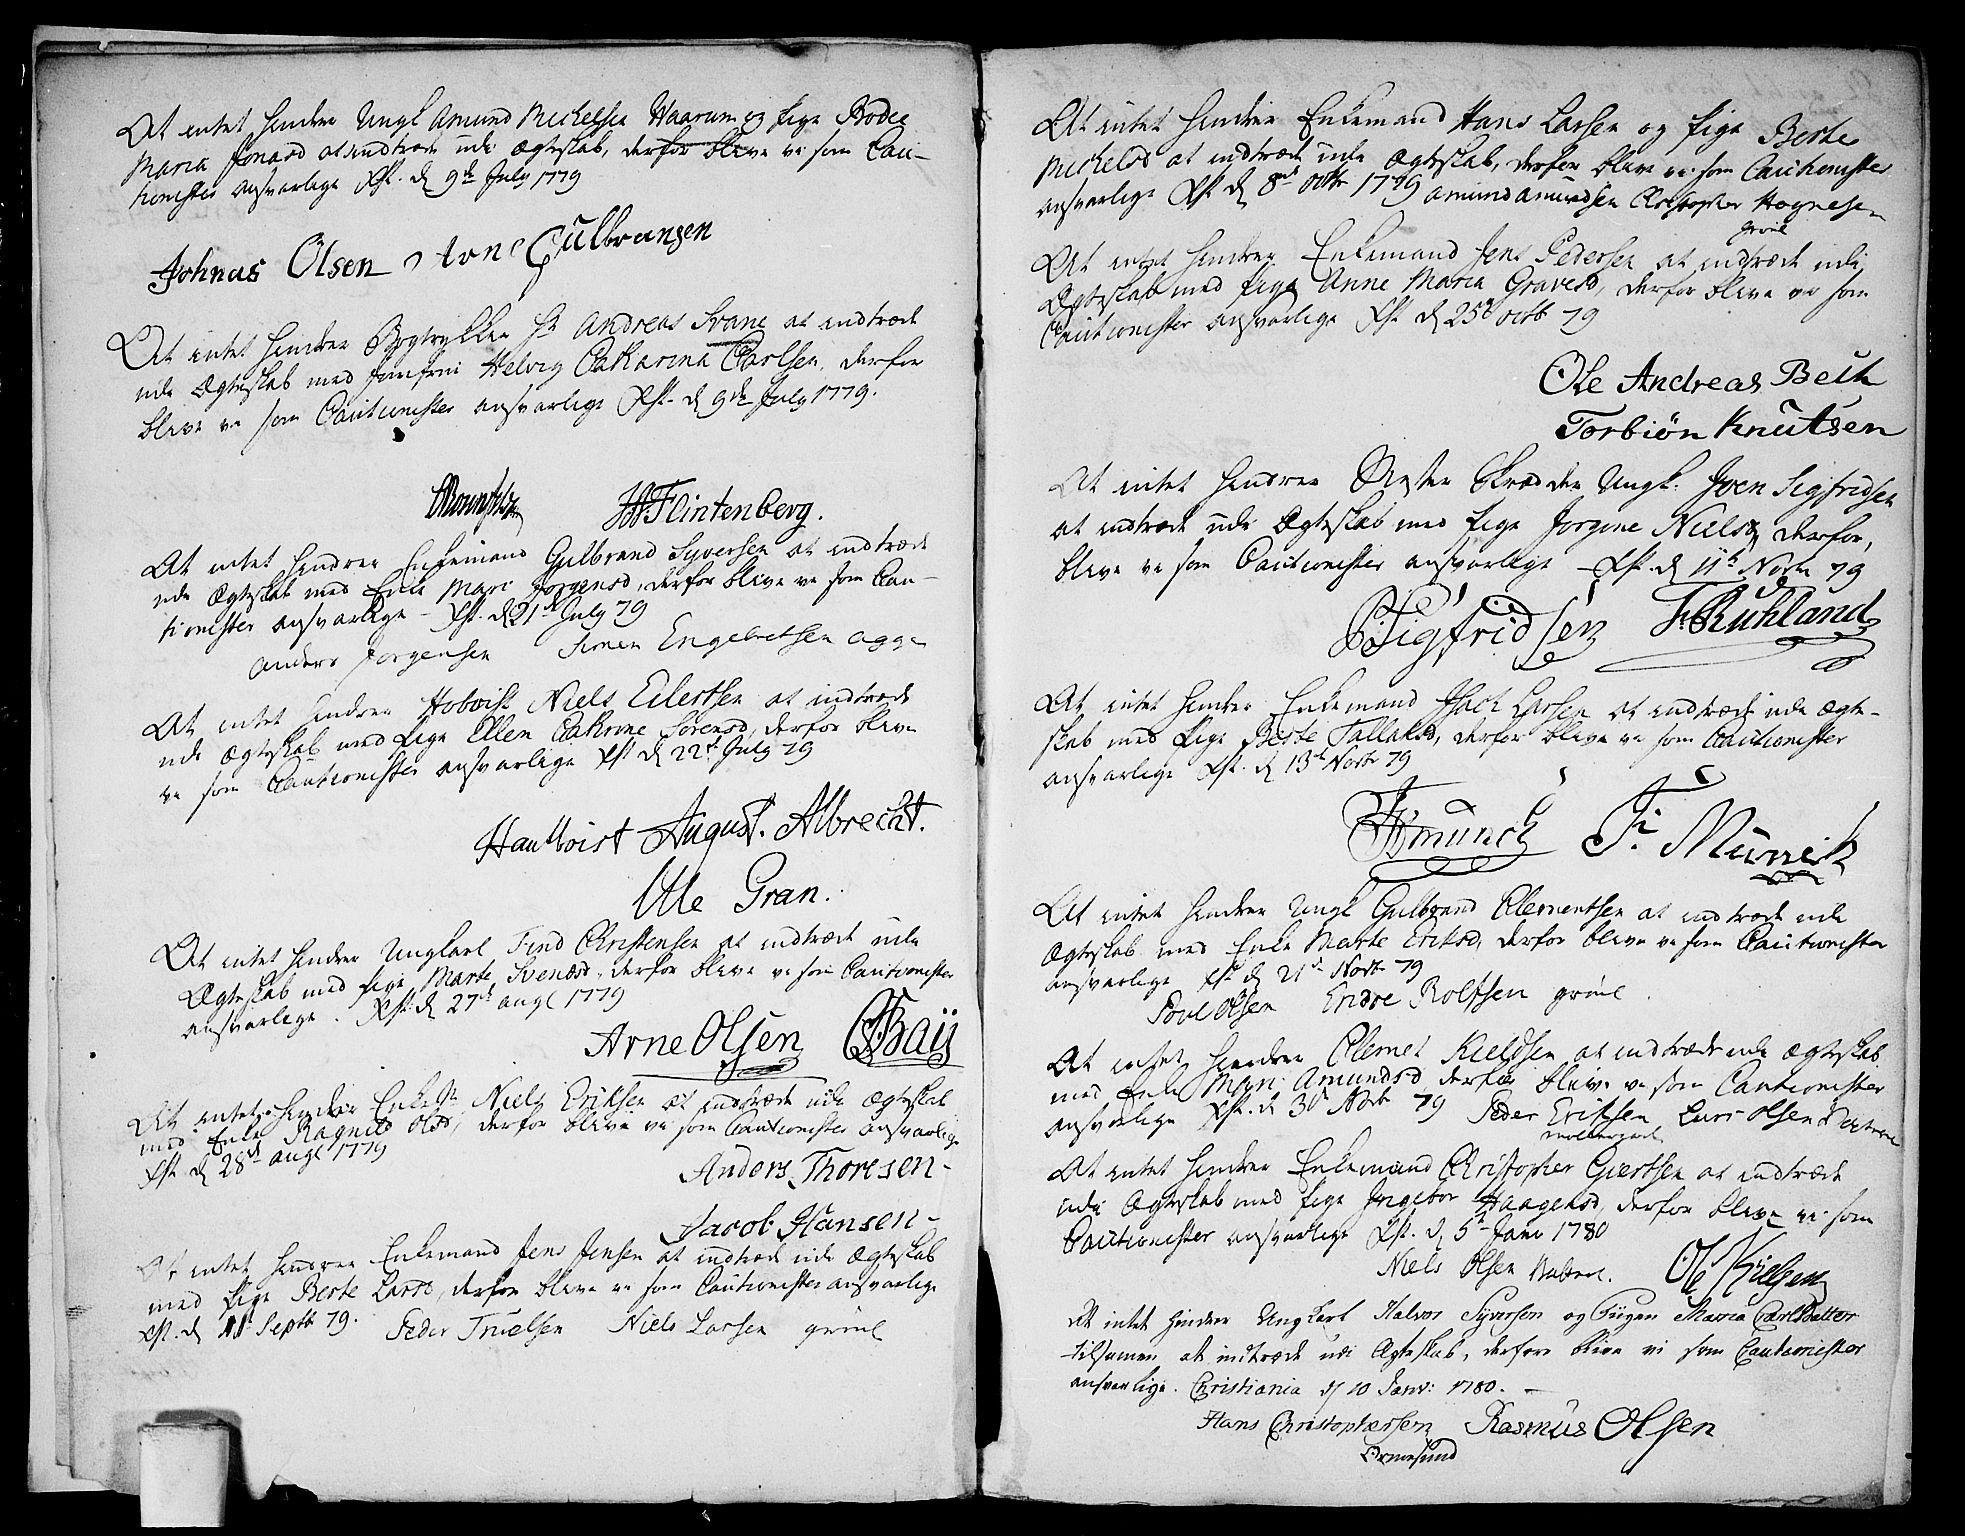 At intet hindrer Ungk Amund Michelsen Waarum og Pige Bodel
Maria Jonasd at indtræde udi Ægteskab, derfor blive vi som Cau-
tionister ansvarlige Xst. d 9de July 1779
Johnas Olsen Arne Gulbransen
At intet hindrer Bogtrykker Hr Andreas Svane at indtræde
udi Ægteskab med Jomfrui Helvig Catharina Carlsen, derfor
blive vi som Cautionister ansvarlige Xst. d 9de July 1779.
Flintenberg.
At intet hindrer Enkemand Gulbrand Syversen at indtræde
udi Ægteskab med Enke Mari Jorgensd, derfor blive vi som Cau-
tionister ansvarlige - Xst. d 21de July 79
Anders Jorgensen Simen Engebretsen agge
At intet hindrer Hoboist Niels Eilertsen at indtræde
udi Ægteskab med Pige Ellen Cathrine Sorensd, derfor blive
vi som Cautionister ansvarlige Xst d 22d July 79
Hautboist August. Albrecht.
Ole Gran.
At intet hindrer Ungkarl Find Christensen at indtræde udi
Ægteskab med Pige Marte Svensd, derfor blive vi som Cautionister
ansvarlige. Xst. d 27de augl 1779
Arne Olsen Baÿ
At intet hindrer Niels Eriksen at indtræde udi Ægteskab
med Enke Ragnild Olsd, derfor blive vi som Cautionister ansvarlige
Xst. d 28de augl 1779
Anders Thoresen-
Jacob Hansen-
At intet hindrer Enkemand Jens Jensen at indtræde udi Ægteskab
med Pige Berte Larsd, derfor blive vi som Cautionister ansvarlige
Xst. d 11t Septb 79. Peder Truelsen Niels Larsen grønl
At intet hindrer Enkemand Hans Larsen og Pige Berte
Michelsd at indtræde udi Ægteskab, derfor blive vi som Cautionister
ansvarlige Xst d 8de octbr 1779 Amund Amundsen Christopher Hognesen
grønl
At intet hindrer Enkemand Jens Pedersen at indtræde udi
Ægteskab med Pige Anne Maria Gravesd, derfor blive vi som
Cautionister ansvarlige Xst d 25d octb 79
Ole Andreas Beck
Torbiön Knutsen
At intet hindrer Mester Skrædder Ungk. Iven Sigfridsen
at indtræde udi Ægteskab med Pige Jorgine Nielsd, derfor,
blive vi som Cautionister ansvarlige - Xst. d 11te Novbr 79
Sigfridsen F. Ruhland
At intet hindrer Enkemand Isach Larsen at indtræde udi Ægte-
skab med Pige Berte Tallaksd, derfor blive vi som Cautionister
ansvarlige Xst. d 13d Novbr 79
munch Fr Munch
At intet hindrer Ungk Gulbrand Clementsen at indtræde udi
Ægteskab med Enke Marte Eriksd, derfor blive vi som Cautionister
ansvarlige Xst d 21de Novbr 79
Povel Olsen Endre Rolfsen grönl.
At intet hindrer Clemet Kieldsen at indtræde udi Ægteskab
med Enke Mari Amundsd, derfor blive vi som Cautionister
ansvarlige Xst. d 30d Novbr 79 Peder Eriksen Lars Olsen
At intet hindrer Enkemand Christopher Giertsen at indtræde
udi Ægteskab med Pige Ingebor Haagensd, derfor blive vi som
Cautionister ansvarlige Xst. d 5te Janv 1780
Niels Olsen Ole Nielsen
At intet hindrer Ungkarl Halvor Syversen og Piigen Maria Carlsdatter
tilsamen at indtræde udi Ægteskab, derfore blive vi som Cautionister
ansvarlige. Christiania d 10 Janv: 1780. -
Hans Christophersen Rasmus Olsen
Ormesund